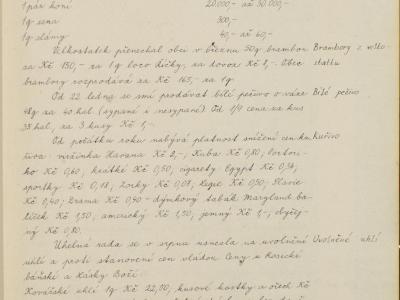 1 pár koní 20.000,- až 30.000,-
1 q sena 500,-
1 q slámy 40,- až 60,-
Velkostatek přenechal obci v březnu 50 q brambor Brambory z velko-
za Kč 150,- za 1 q loco Lícky, za dovoz Kč 8,-. Obec statku
brambory rozprodává za Kč 165,- za 1 q.
Od 22 ledna se smí prodávat bílé pečivo o váze Bílé pečivo
48 g za 40 hal. (sypané i nesypané) Od 1/4 cena za kus
38 hal, za 3 kusy Kč 1,-.
Od počátku roku nabývá platnost snížení cen ku- Kuřivo
řiva: viržinka Havana Kč 2,-, Kuba Kč 0,80; Portori-
ko Kč 0,60, krátké Kč 0,50; cigarety Egypt Kč 0,54;
sportky Kč 0,18; Zorky Kč 0,08, Legie Kč 0,30; Slavie
Kč 0,40; Drama Kč 0,40 - dýmkový tabák Maryland ba-
líček Kč 1,50; americký Kč 1,50, jemný Kč 1,-, obyčej-
ný Kč 0,80.
Uhelná rada se v srpnu usnesla na uvolnění Uvolněné uhlí
uhlí a proti stanovení cen vládou. Ceny u Rosické
báňské a Lásky Boží:
Kovářské uhlí 1 q Kč 22,00; kusové kostky a ořech Kč